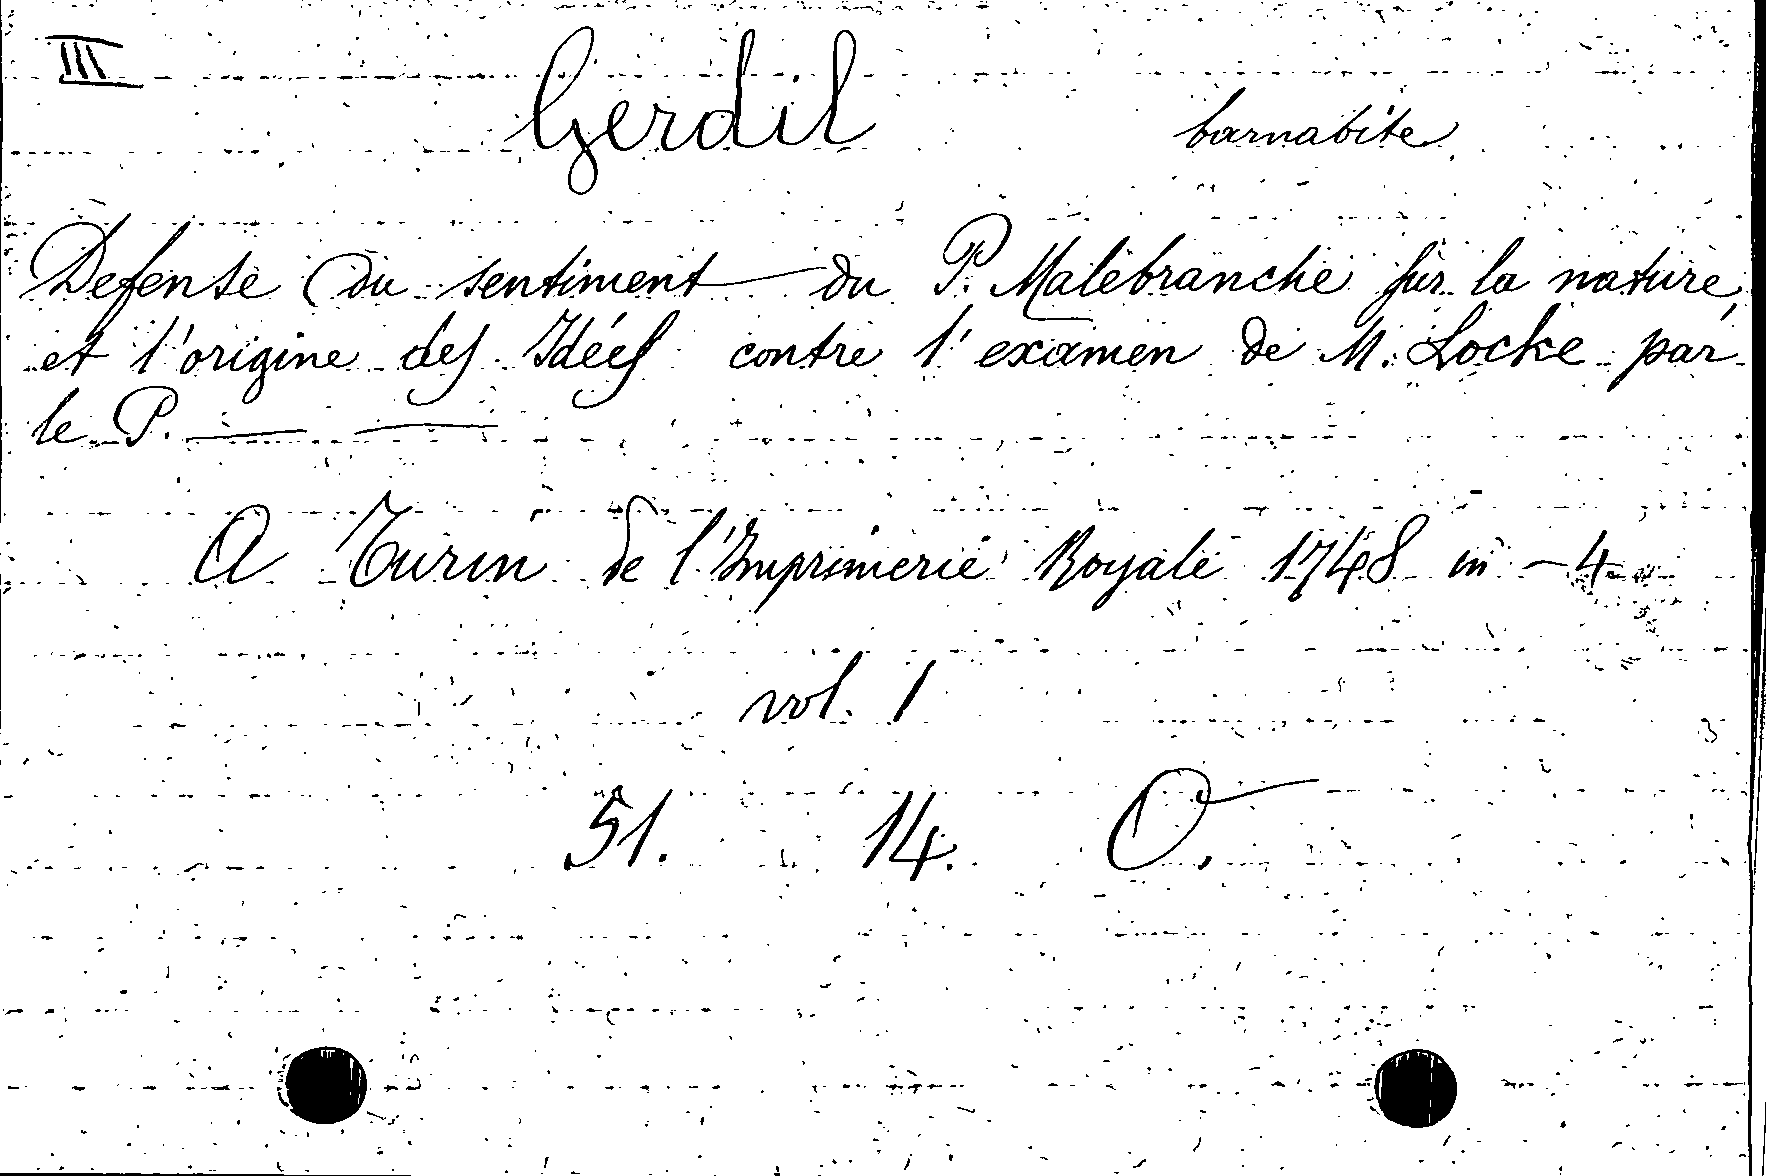 III
Gerdil barnabite
Defense du sentiment du P. Malebranche sur la nature,
et l'origine des Idées contre l'examen de M. Locke par
le P. — —
A Turin de l'Imprimerie Royale 1748 in-4
vol. 1
51. 14. O.